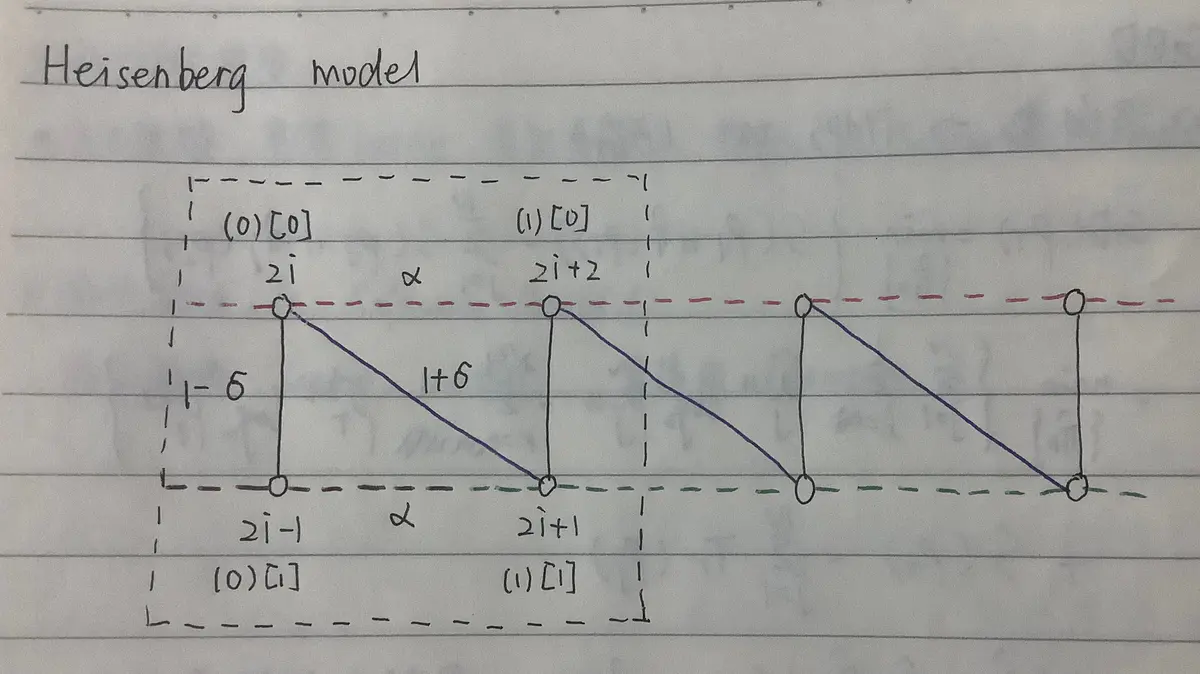 Heisenberg model
(0)[0] (1)[0]
2i α 2i+2
1-δ 1+δ
2i-1 α 2i+1
(0)[1] (1)[1]